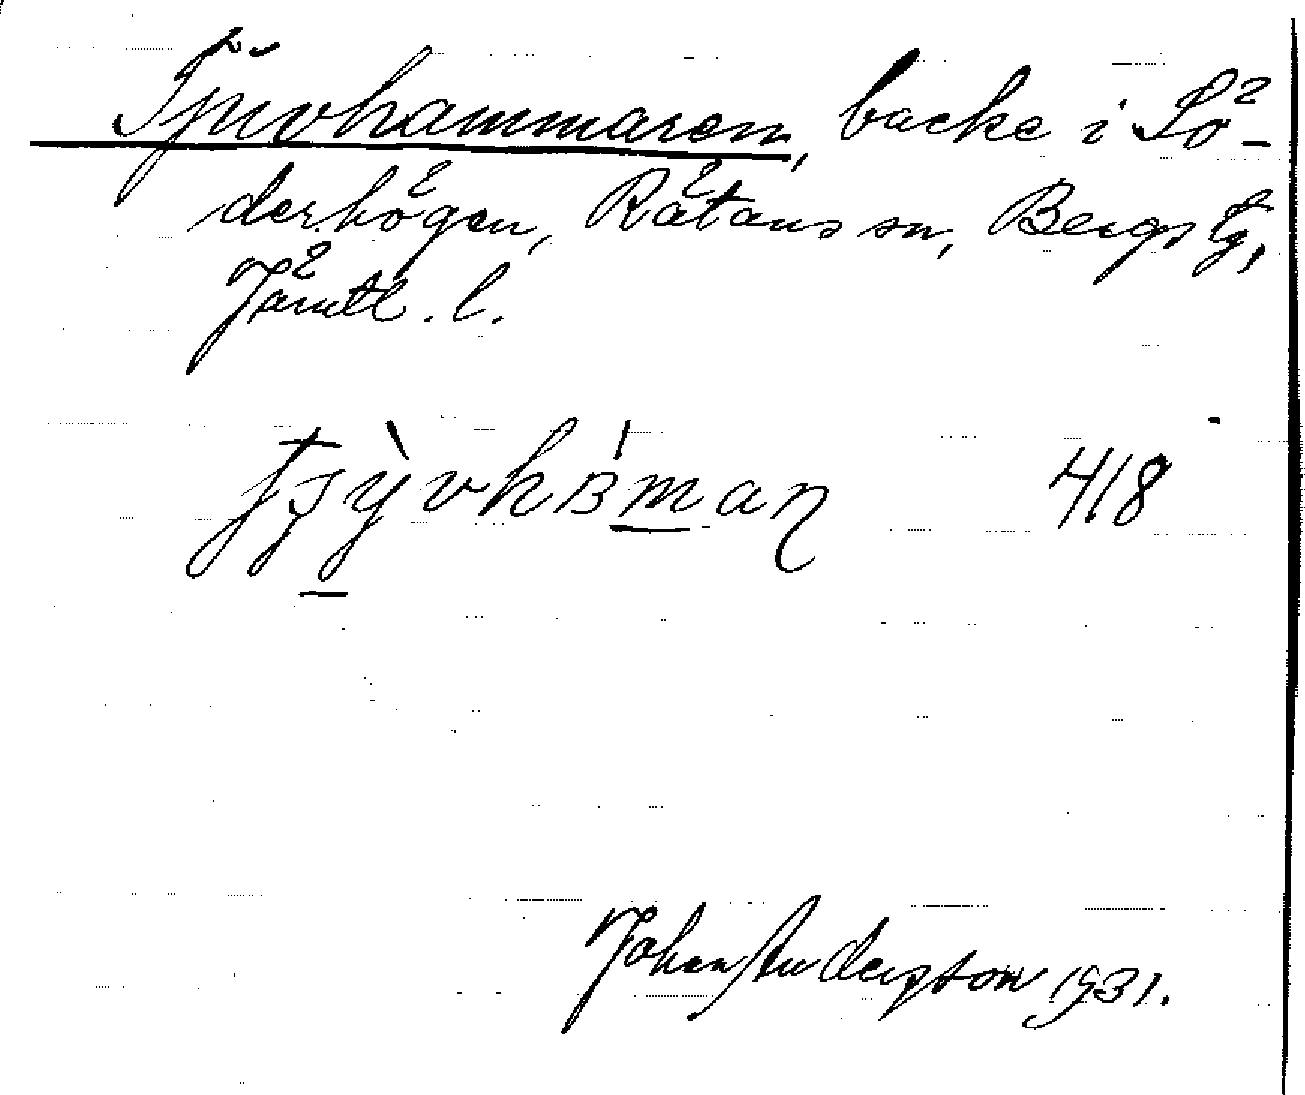 Tjuvhammaren, backe i Sö-
derhögen, Rätans sn, Bergs tg,
Jämtl. l.
418
Johan Anderson 1931.